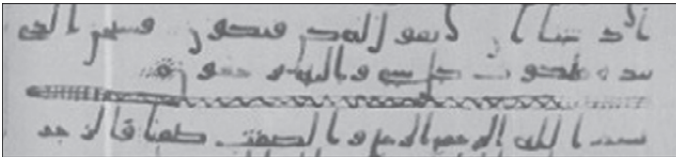 اراد شيا ان يقول له كن فيكون فسبحن الذى
بيده ملكوت كل شى واليه ترجعون
بسم الله الرحمن الرحيم والصفت صفا فالزجر